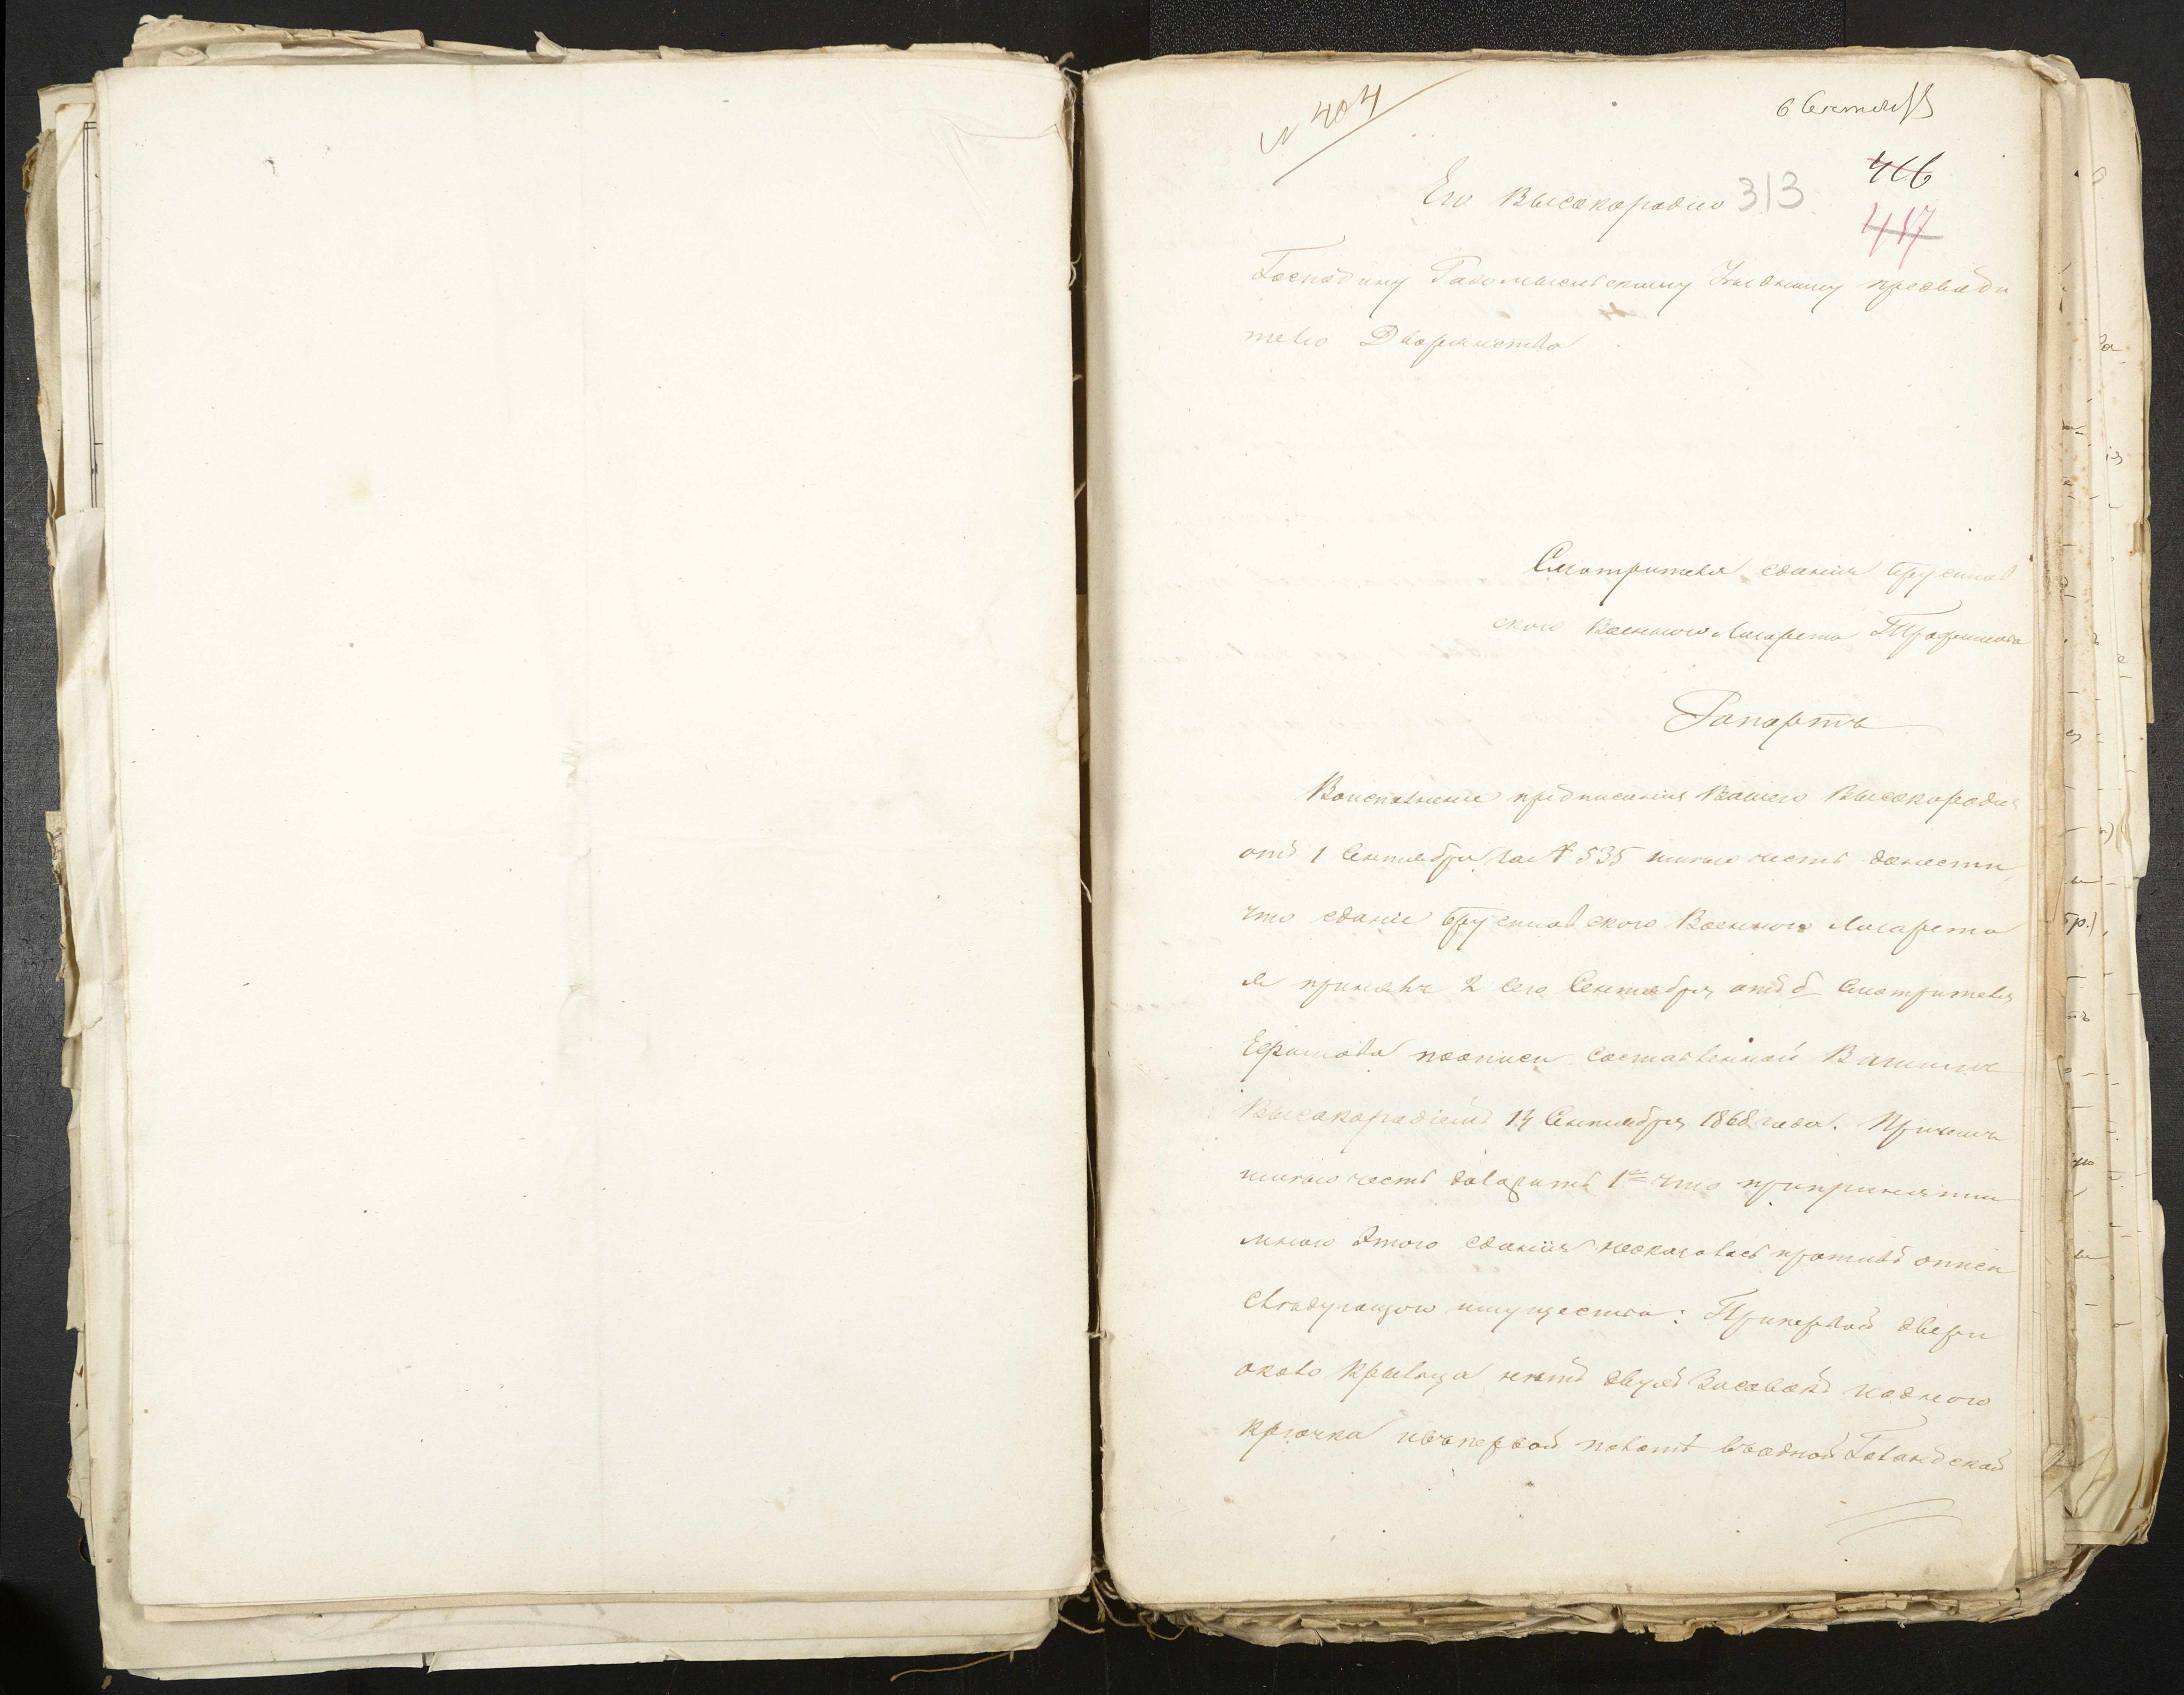 N 404
6 Сентября
416
Его Высокородию 313
417
Господину Радомысльскому Уездному предводи
телю Дворянства
Смотрителя сдания Брусилов
ского Военного Лазарета Трофимова
Рапортъ
Воисполнение предписания Вашего Высокородия
отъ 1 Сентября за № 535 имею честь донести,
что сдание Брусиловского Военного Лазарета
я принялъ 2 сего Сентября отъ б. Смотрителя
Ефимова поописи составленной Вашимъ
Высокородіемъ 14 Сентября 1868 года. Причемъ
имею честь доложить 1е что припринятии
мною этого сдания неоказалось противъ описи
следующого имущества: Припервой двери
около крыльца нетъ двухъ Засовокъ иодного
крючка ивъпервой полате въодной Голандской